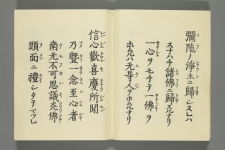 彌陀ノ淨土ニ歸シヌレハ
スナハチ諸佛ニ歸スルナリ
一心ヲモチテ一佛ヲ
ホムルハ无㝵人ヲホムルナリ
信心歡喜慶所聞
乃曁一念至心者
南无不可思議光佛
頭面ニ禮シタテマツレ